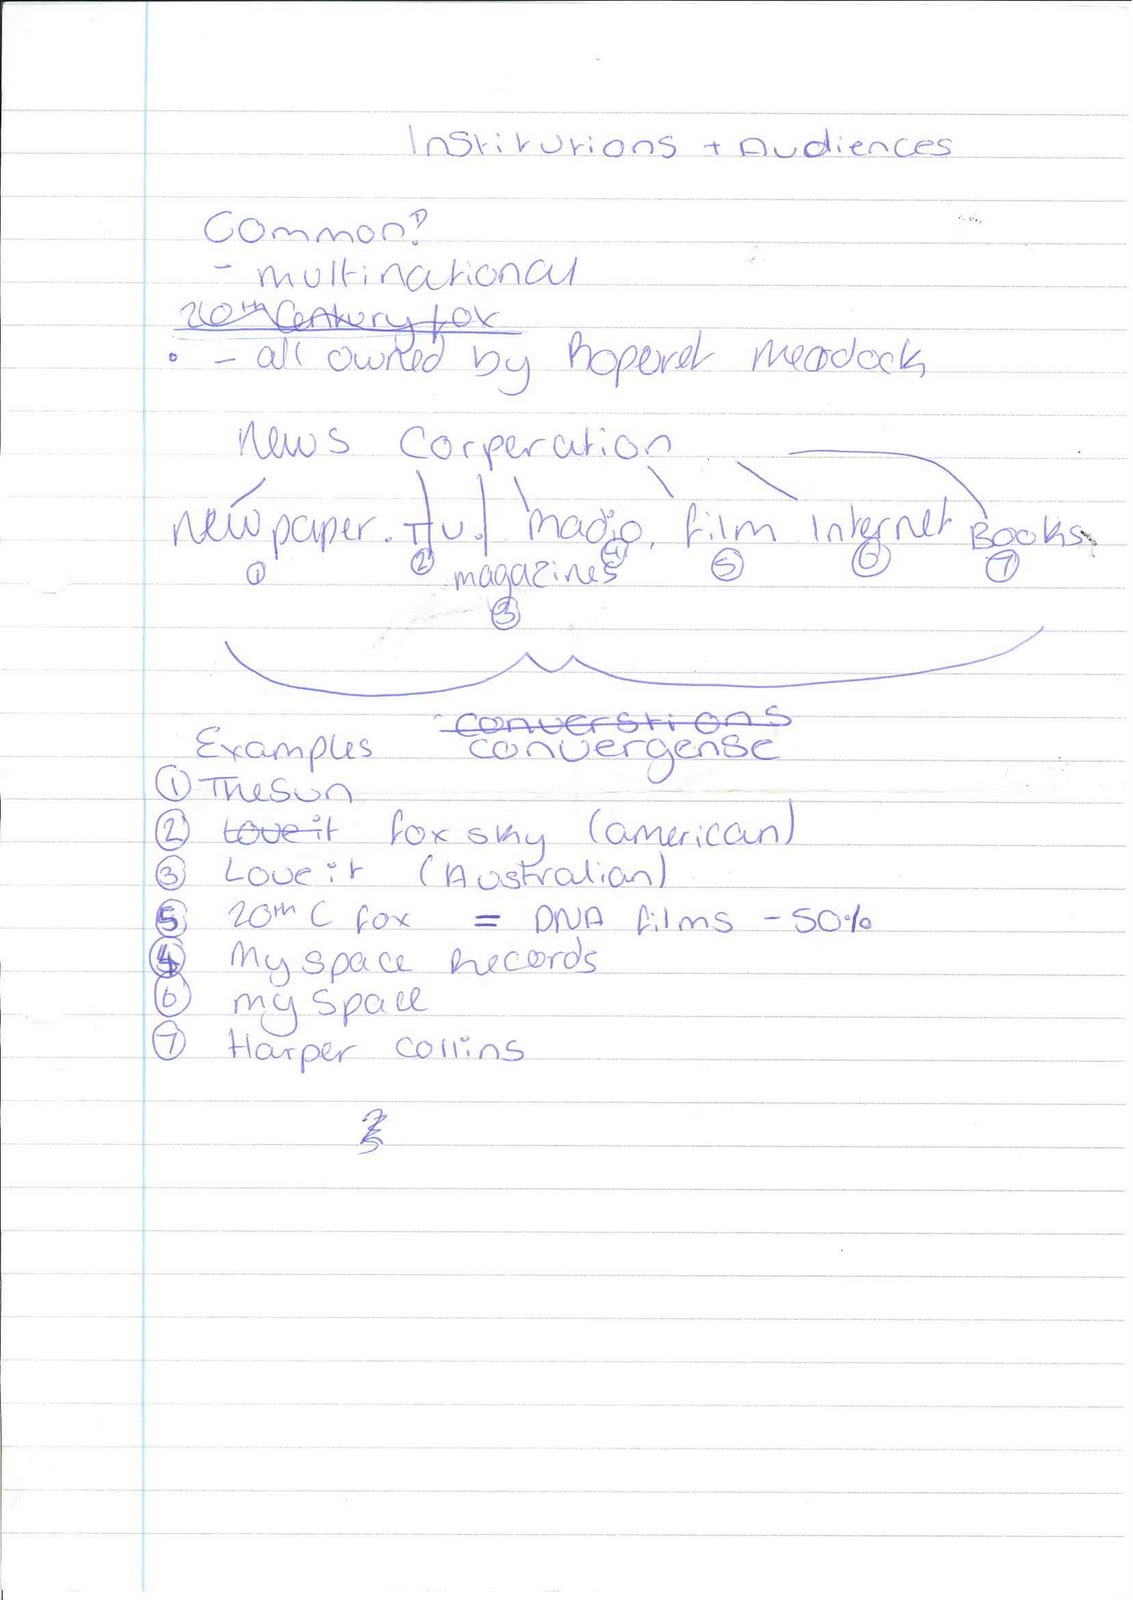 Institutions + Audiences
Common?
- multinational
20th Century fox
- all owned by Roperet Meordock
News Corperation
newspaper. T.V. Radio, film Internet Books
① ② ④ ⑤ ⑥ ⑦
magazines
③
converstions
Examples convergense
① The Sun
② Love it fox sky (american)
③ Love it (Australian)
⑤ 20th C fox = DNA films - 50%
④ My space Records
⑥ my space
⑦ Harper Collins